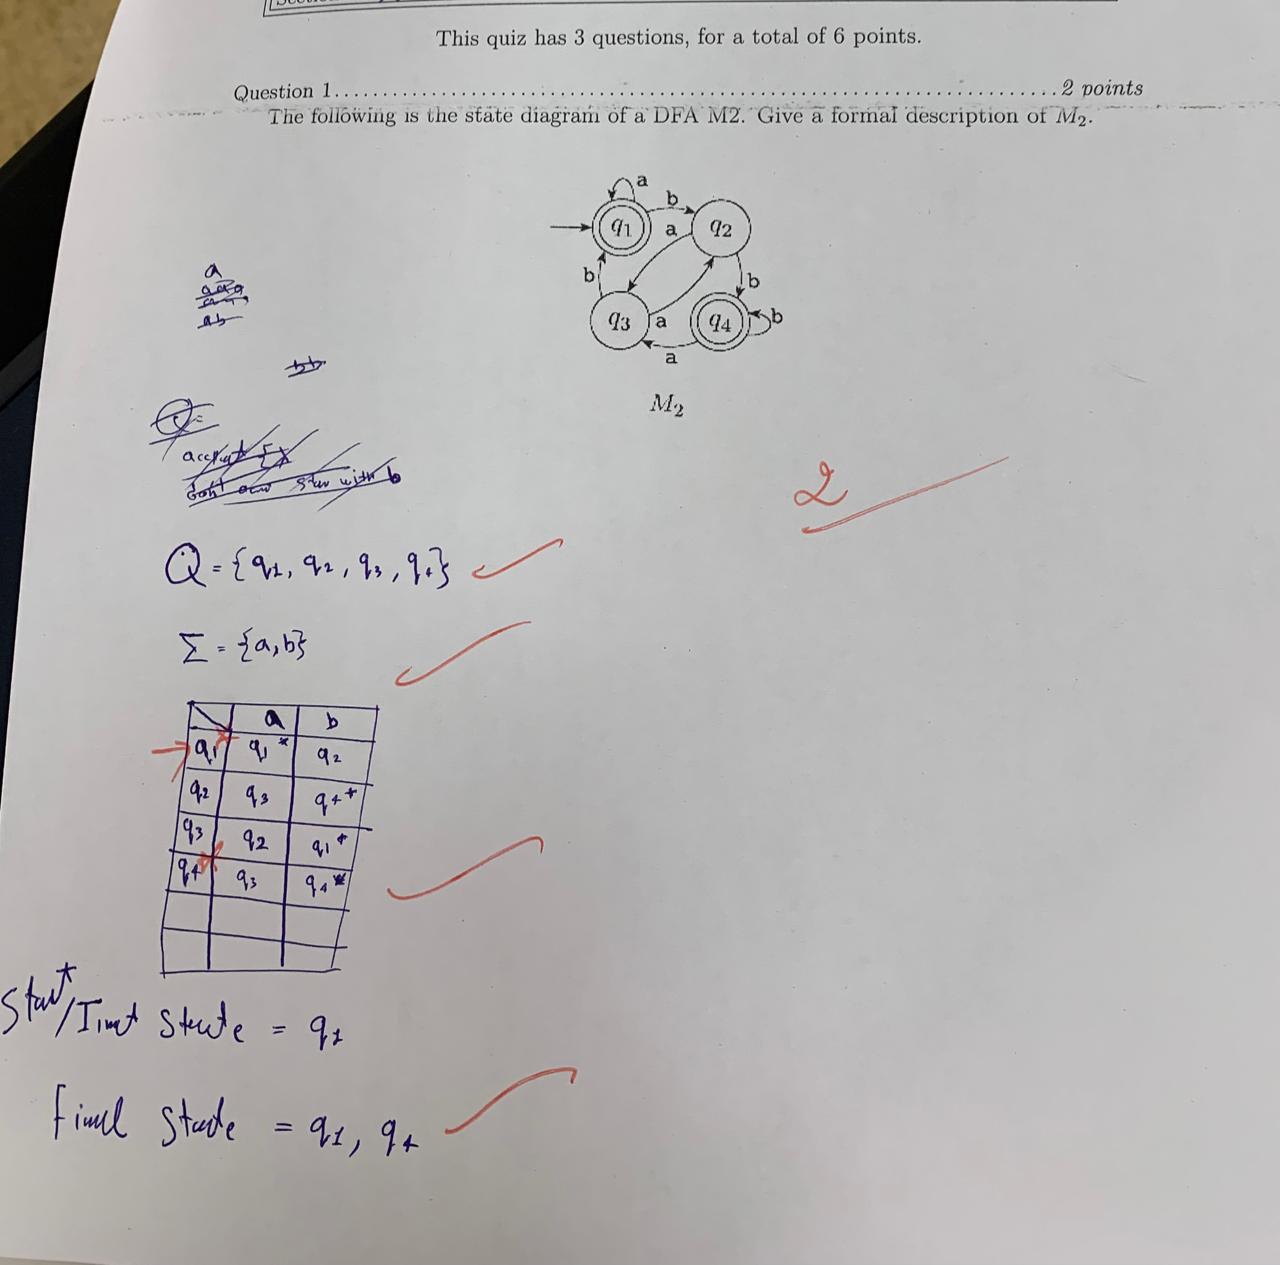 This quiz has 3 questions, for a total of 6 points.
Question 1........................................................................2 points
The following is the state diagram of a DFA M2. Give a formal description of M₂.
a
b
q₁
a
q₂
b
b
q₃
a
q₄
b
a
M₂
a
ab
bb
Q=
2
Q = {q₁, q₂, q₃, q₄}
Σ = {a,b}
a b
q₁ q₁* q₂
q₂ q₃ q₄*
q₃ q₂ q₁*
q₄ q₃ q₄*
Start
state = q₁
final state = q₁, q₄